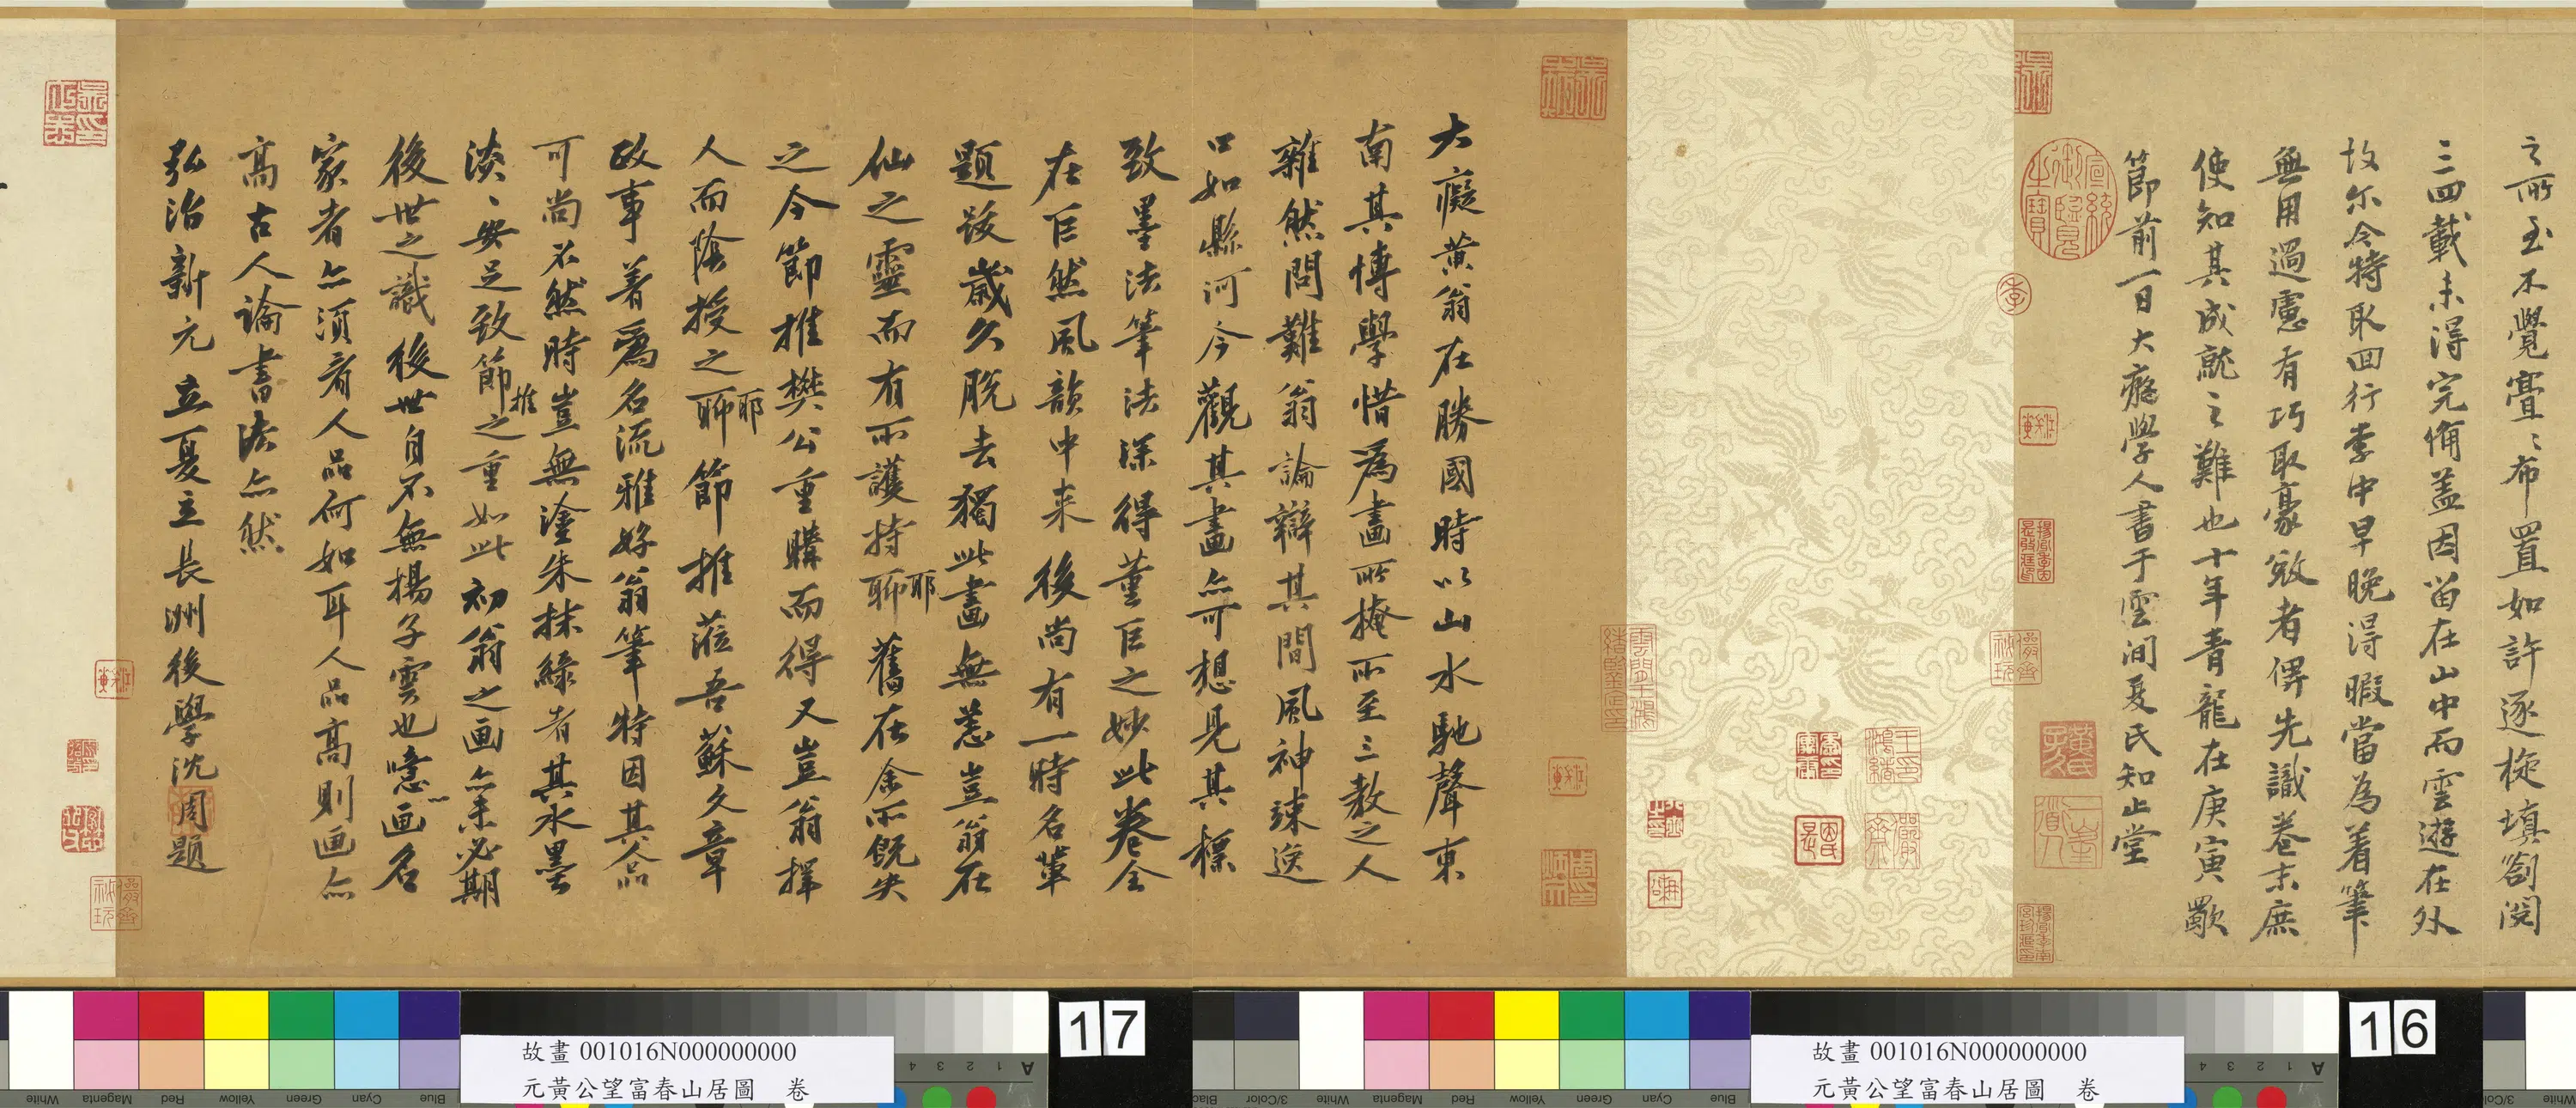 之所至不覺亹〻布置如許逐旋填劄閱
三四載未得完俻盖因留在山中而雲遊在外
故尔今特取回行李中早晚得暇當為着筆
無用過慮有巧取豪敓者俾先識卷末庶
使知其成就之難也十年青龍在庚寅歜
節前一日大癡學人書于雲間夏氏知止堂
宣統御覽之寶
季
黃氏子久
一峯道人
大癡黃翁在勝國時以山水馳聲東
南其博學惜為畫所掩所至三教之人
雜然問難翁論辯其間風神竦逸
口如縣河今觀其畫亦可想見其標
致墨法筆法深得董巨之妙此卷全
在巨然風韻中来後尚有一時名輩
題跋歲久脫去獨此畫無恙豈翁在
仙之靈而有所護持聊耶舊在余所既失
之今節推樊公重購而得又豈翁擇
人而陰授之聊耶節推蒞吾蘇文章
政事著為名流雅好翁筆特因其人品
可尚不然時豈無塗朱抹綠者其水墨
淡〻安足致節推之重如此初翁之画亦未必期
後世之識後世自不無揚子雲也噫画名
家者亦須看人品何如耳人品高則画亦
高古人論書法亦然
弘治新元立夏立長洲後學沈周題
16
故畫 001016N000000000
元黃公望富春山居圖　卷
17
故畫 001016N000000000
元黃公望富春山居圖　卷
Blue
Cyan
Green
Yellow
Red
Magenta
White
3/Color
Blue
Cyan
Green
Yellow
Red
Magenta
White
A 1 2 3 4
A 1 2 3 4